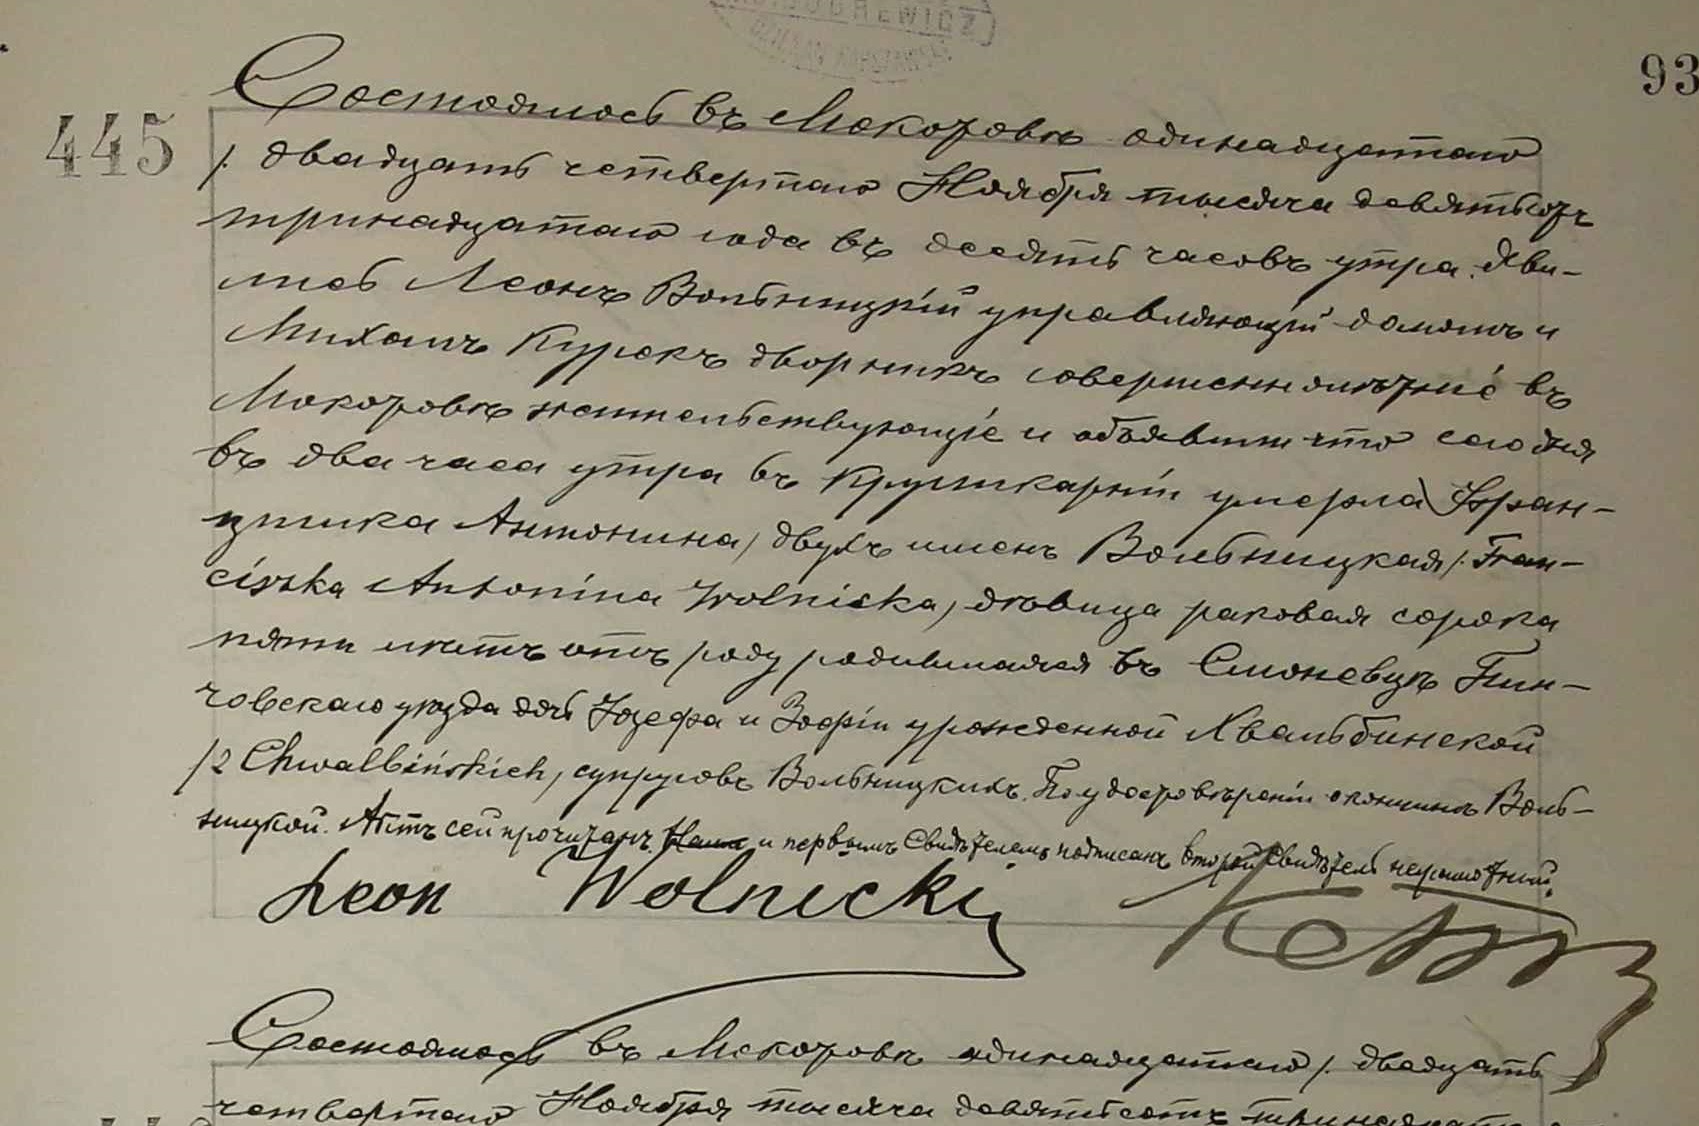 93
445
Состоялось въ Мокотовѣ одинадцатаго
/. двадцать четвертаго Ноября тысяча девятьсотъ
тринадцатаго года въ десять часовъ утра. Яви-
лись Леонъ Вольницкій управляющій домомъ и
Михаилъ Курекъ дворникъ совершеннолѣтніе въ
Мокотовѣ жительствующіе и объявили что сего дня
въ два часа утра въ умерла Фран-
цишка Антонина, двухъ именъ Вольницкая /. Fran-
ciszka Antonina Wolnicka, дѣвица сорока
пяти лѣтъ отъ роду родившаяся въ Пин-
човскаго уѣзда дочь Іозефа и Зофіи урожденной Хвальбинской
/z Chwalbińskich, супруговъ Вольницкихъ. По удостовѣреніи о кончинѣ Воль-
ницкой. Актъ сей прочитанъ Нами и первымъ Свидѣтелемъ подписанъ второй Свидѣтель неграмотный.
Leon Wolnicki
Состоялось въ Мокотовѣ одинадцатаго /. двадцать
четвертаго Ноября тысяча девятьсотъ